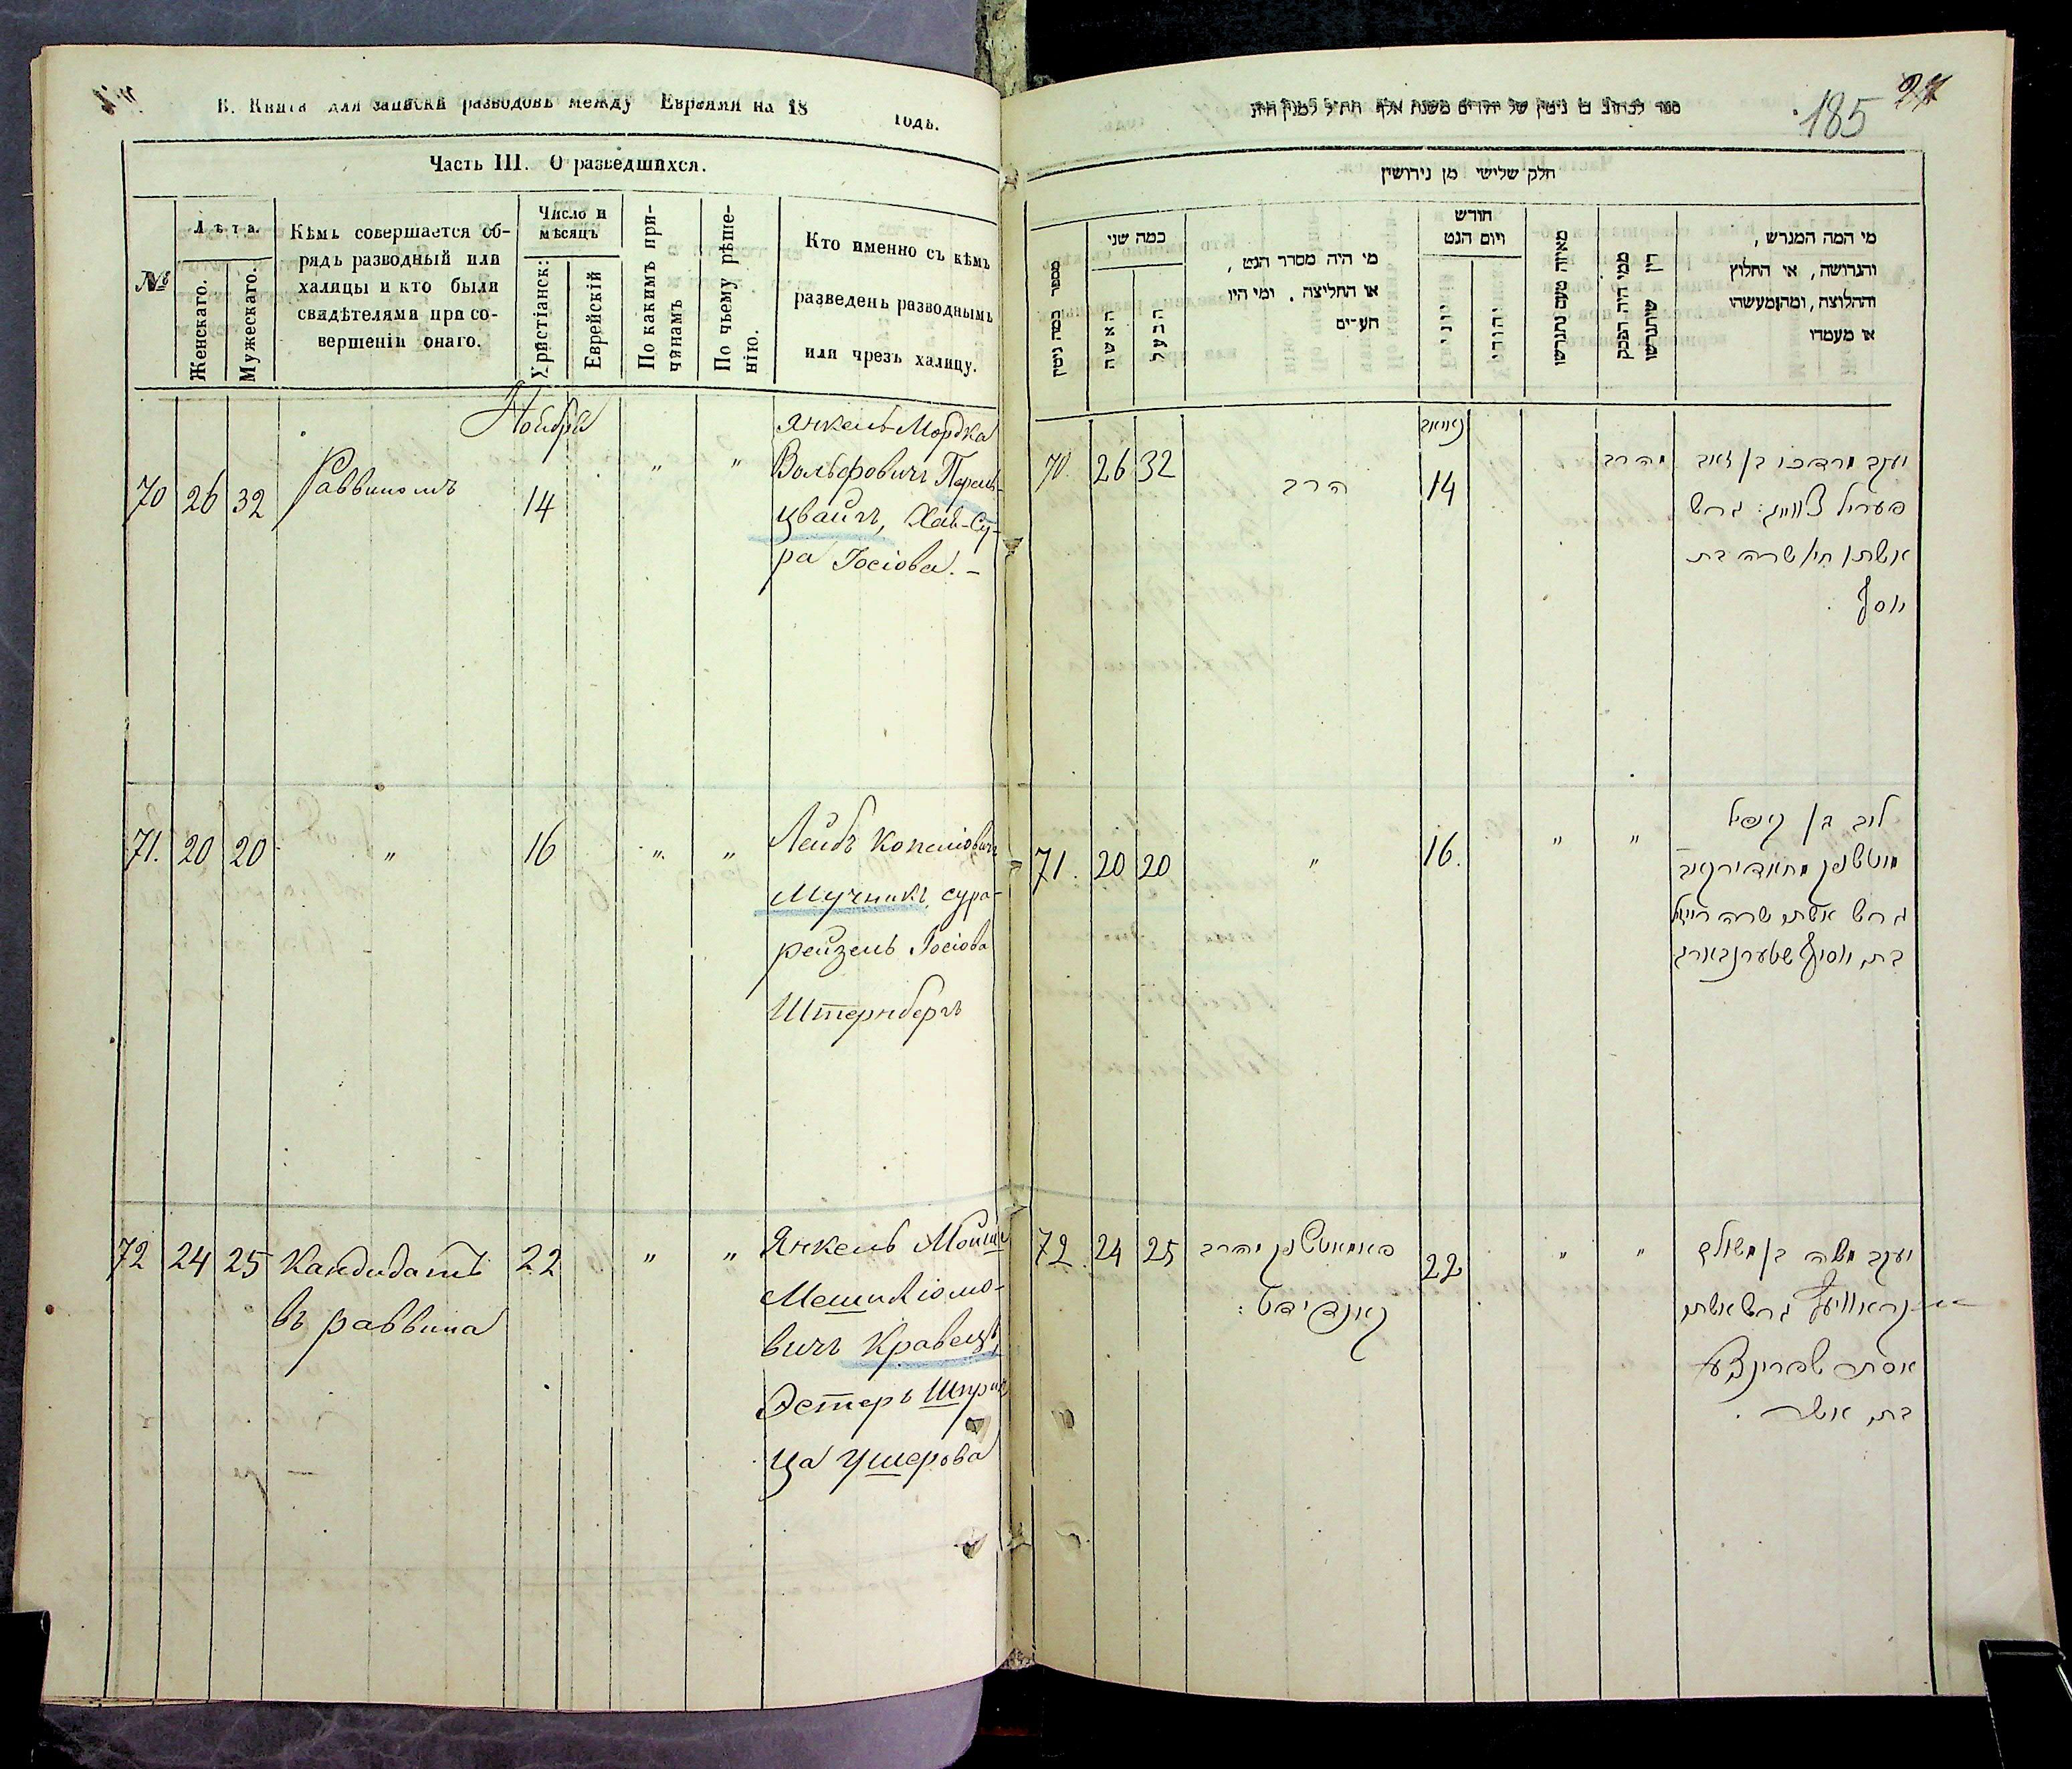 В. Книга для записки разводовъ между Евреями на 18 годъ.
Часть III. О разведшихся.
№
Лѣта.
Женскаго.
Мужескаго.
Кѣмъ совершается об-
рядъ разводный или
халицы и кто были
свидѣтелями при со-
вершеніи онаго.
Число и
мѣсяцъ
Христіанск:
Еврейскій
По какимъ при-
чинамъ
По чьему рѣше-
нію.
Кто именно съ кѣмъ
разведенъ разводнымъ
или чрезъ халицу.
Ноября
70 26 32 Раввиномъ 14 " "
Янкель-Мордка
Вольфовичъ Перель-
цвайгъ, Хая-Су-
ра Іосіова. –
71. 20 20 " 16 " "
Лейбъ Копеліовичъ
Мучникъ, Сура-
рейзель Іосіова
Штернбергъ
72 24 25 Кандидатъ 22 " "
въ раввина
Янкель Мойше
Мешиліомо-
вичъ Кравецъ,
Эстеръ Шприн
ца Ушерова
185
חלק שלישי מן גירושין
מספר כמה גיטין
כמה שני
האשה
הבעל
מי היה מסדר הגט,
או החליצה. ומי היו
חורש
ויום הגט
יהודי
מאיזה טעם נתגרשו
ממי היה הפסק
דין שיתגרשו
מי המה המגרש,
והגרושה, או החלוץ
והחלוצה, ומה מעשהו
או מעמדו
70. 26 32 הרב 14
יעקב מרדכי בן זאב
פערילצווייג: גרש
אשתו חי' שרה בת
יוסף
71. 20 20 " 16. " "
ליב בן קאפיל
גרש אשתו שרה רייזל
בת יוסף שטערנבארג
72. 24 25 22 " "
קאנדידט:
יעקב משה בן משולם
קראוויעץ גרש אשתו
אסתר שפרינצע
בת אשר.